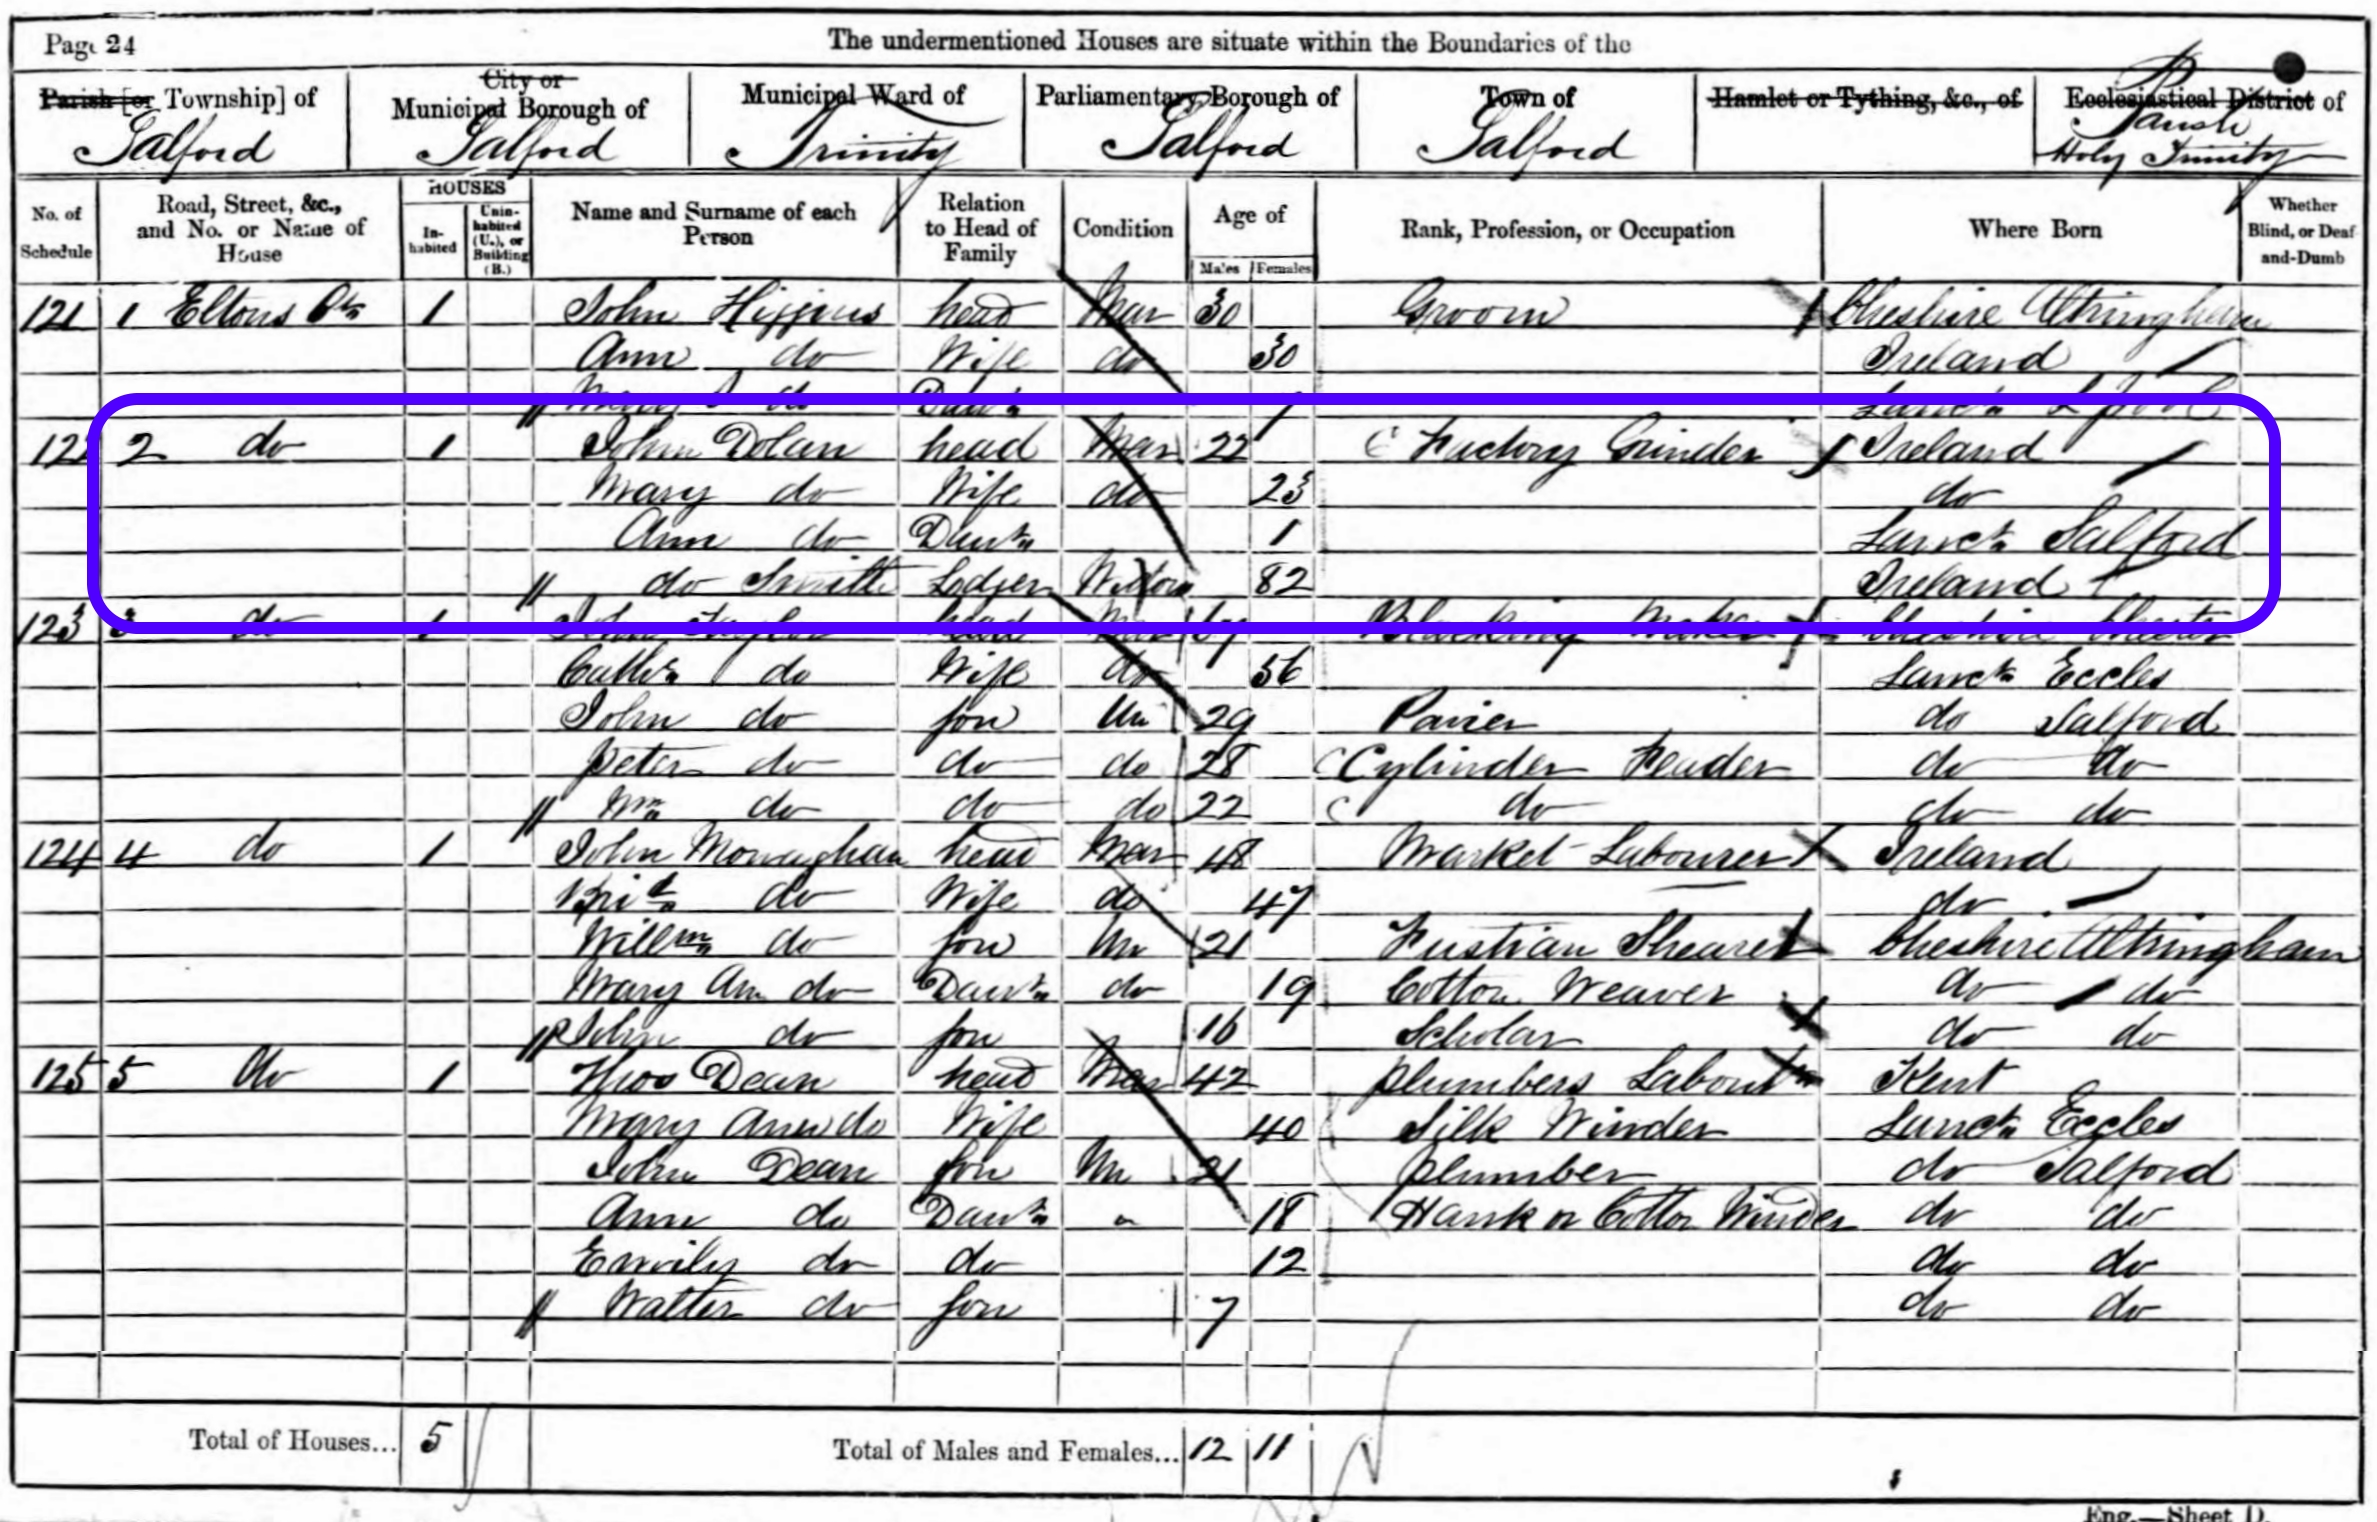 Page 24 The undermentioned Houses are situate within the Boundaries of the
Parish [or Township] of City or Municipal Borough of Municipal Ward of Parliamentary Borough of Town of Hamlet or Tything, &c., of Ecclesiastical District of
Salford Salford Trinity Salford Salford Parish Holy Trinity
No. of Schedule Road, Street, &c., and No. or Name of House HOUSES Inhabited Uninhabited (U.), or Building (B.) Name and Surname of each Person Relation to Head of Family Condition Age of Males Females Rank, Profession, or Occupation Where Born Whether Blind, or Deaf-and-Dumb
121 1 Eltons 1 John Higgins head Mar 30 Groom Cheshire Altringham
Ann do Wife do 30 Ireland
do Daur
122 2 do 1 John Dolan head Mar 22 Factory Grinder Ireland
Mary do Wife do 23 do
Ann do Daur 1 Lancr Salford
do Smith Lodger Widow 82 Ireland
123 3 do 1 John Taylor head Mar Blacking Maker Cheshire Chester
Cathn do Wife do 56 Lancr Eccles
John do son Un 29 Pavier do Salford
Peter do do do 28 Cylinder do do
Wm do do do 22 do do do
124 4 do 1 John Monaghan head Mar 48 Market Labourer Ireland
do Wife do 47 do
Willm do son Un 21 Fustian Shearer Cheshire Altringham
Mary Ann do Daur do 19 Cotton Weaver do do
John do son 16 Scholar do do
125 5 do 1 Thos Dean head Mar 42 Plumbers Labourer Kent
Mary Ann do Wife 40 Silk Winder Lancr Eccles
John Dean son Un 21 Plumber do Salford
Ann do Daur 18 Hank or Cotton Winder do do
Emily do do 12 do do
Walter do son 7 do do
Total of Houses... 5 Total of Males and Females... 12 11
Eng.—Sheet D.